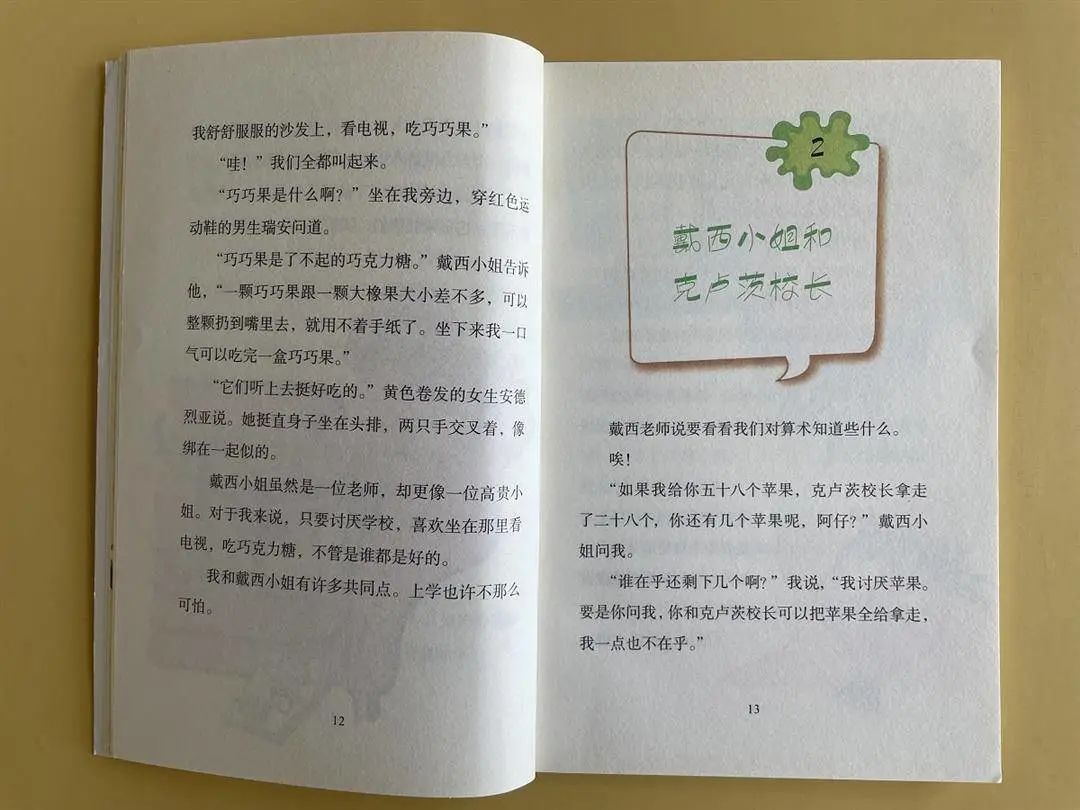 我舒舒服服的沙发上，看电视，吃巧巧果。”
“哇！”我们全都叫起来。
“巧巧果是什么啊？”坐在我旁边，穿红色运
动鞋的男生瑞安问道。
“巧巧果是了不起的巧克力糖。”戴西小姐告诉
他，“一颗巧巧果跟一颗大橡果大小差不多，可以
整颗扔到嘴里去，就用不着手纸了。坐下来我一口
气可以吃完一盒巧巧果。”
“它们听上去挺好吃的。”黄色卷发的女生安德
烈亚说。她挺直身子坐在头排，两只手交叉着，像
绑在一起似的。
戴西小姐虽然是一位老师，却更像一位高贵小
姐。对于我来说，只要讨厌学校，喜欢坐在那里看
电视，吃巧克力糖，不管是谁都是好的。
我和戴西小姐有许多共同点。上学也许不那么
可怕。
12
2
戴西小姐和
克卢茨校长
戴西老师说要看看我们对算术知道些什么。
唉！
“如果我给你五十八个苹果，克卢茨校长拿走
了二十八个，你还有几个苹果呢，阿仔？”戴西小
姐问我。
“谁在乎还剩下几个啊？”我说，“我讨厌苹果。
要是你问我，你和克卢茨校长可以把苹果全给拿走，
我一点也不在乎。”
13